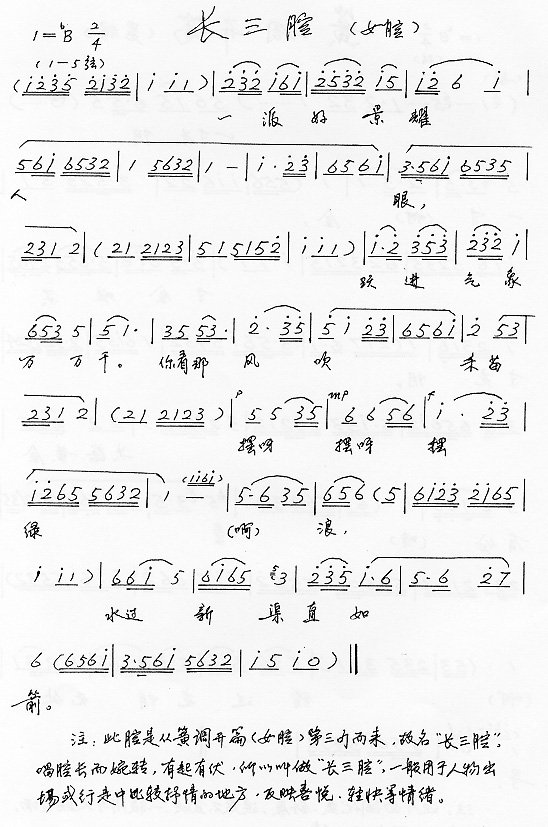 1=ᵇB 2/4 长三腔 (女腔)
(1-5弦)
(i̇ 2̇ 3̇ 5̇ 2̇ i̇ 3̇ 2̇ | i̇ i̇ i̇) | 2̇ 3̇ 2̇ i̇ 6 i̇ | 2̇ 5̇ 3̇ 2̇ i̇ 5 | i̇ 2̇ 6 i̇ |
一 派 好 景 耀
5 6 i̇ 6 5 3 2 | 1 5 6 3 2 | 1 - | i̇ · 2̇ 3̇ | 6 5 6 i̇ | 3 · 5 6 i̇ 6 5 3 5 |
人 眼,
2 3 1 2 | (2 1 2 1 2 3 | 5 1 5 1 5 2̇ | i̇ i̇ i̇) | i̇ · 2̇ 3̇ 5̇ 3̇ | 2̇ 3̇ 2̇ i̇ |
跃 进 气 象
6 5 3 5 | 5 i̇ · | 3 5 5 3 · | 2̇ · 3̇ 5̇ | 5̇ i̇ 2̇ 3̇ | 6 5 6 i̇ | 2̇ 5 3 |
万 万 千。 你看那 风 吹 禾苗
2 3 1 2 | (2 1 2 1 2 3) | p 5 5 3 5 | mp 6 6 5 6 | f i̇ · 2̇ 3̇ |
摆呀 摆呀 摆
i̇ 2̇ 6 5 5 6 3 2 | 1 (i̇ i̇ 6 i̇) - | 5 · 6 3 5 | 6 5 6 (5 | 6 i̇ 2̇ 3̇ 2̇ i̇ 6 5 |
绿 (啊) 浪,
i̇ i̇ i̇) | 6 6 i̇ 5 | 6 i̇ 6 5 3 | 2̇ 3̇ 5̇ i̇ · 6 | 5 · 6 2̇ 7 |
水过 新 渠 直 如
6 (6 5 6 i̇ | 3 · 5 6 i̇ 5 6 3 2 | i̇ 5 i̇ 0) ‖
箭。
注: 此腔是从簧调开篇(女腔)第三句而来,故名"长三腔",
唱腔长而婉转,有起有伏,所以叫做"长三腔",一般用于人物出
场或行走中比较抒情的地方,反映喜悦、轻快等情绪。